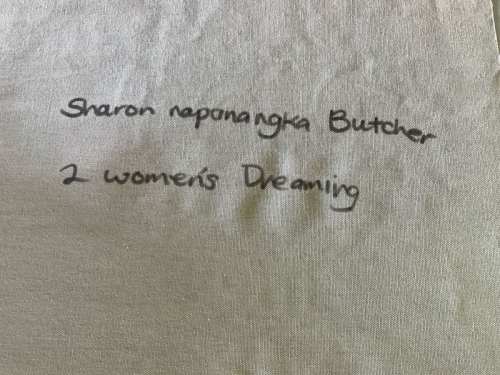 Sharon napanangka Butcher
2 women's Dreaming